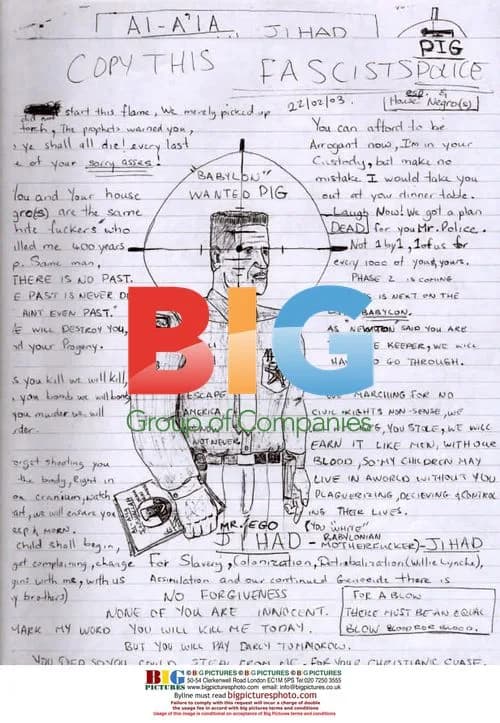 AI-A'IA JIHAD
PIG
COPY THIS FASCISTS POLICE
22/02/03.
esp. &
House Negro(s)
start this flame, We merely picked up
torch, The prophets warned you,
ye shall all die! every last
e of your sorry asses!
You and Your house
gro(s) are the same
hite fuckers who
illed me 400 years
Same man,
THERE IS NO PAST.
E PAST IS NEVER
AINT EVEN PAST."
WILL DESTROY YOU,
nd your Progeny.
s you kill we will kill,
you bomb we will bomb
you murder we will
rder.
orget shooting you
the body, Right in
cranium, watch
art, we will ensure you
eep & MORN.
Child shall begin,
"BABYLON"
WANTED PIG
ESCAPE
AMERICA,
NOT NEVER
MR. EGO
You can afford to be
Arrogant now, I'm in your
Custody, but make no
mistake I would take you
out at your dinner table.
Laugh Now! We got a plan
DEAD for you Mr. Police.
Not 1 by 1, 1 of us for
every 1000 of your yours.
PHASE 2 IS COMING
IS NEXT ON THE
BABYLON.
AS NEWTON SAID YOU ARE
KEEPER, WE WILL
HAVE TO GO THROUGH.
MARCHING FOR NO
CIVIL RIGHTS NON-SENSE, WE
YOU STOLE, WE WILL
EARN IT LIKE MEN, WITH OUR
BLOOD, SO MY CHILDREN MAY
LIVE IN A WORLD WITHOUT YOU
PLAGUERIZING, DECIEVING & CONTROL
ING THEIR LIVES.
(YOU "WHITE"
BABYLONIAN
JIHAD - MOTHERFUCKER) - JIHAD
get complaining, change For Slavery, Colonization, Detribalization (Willie Lynche),
with me, with us Assimilation and our continued Genocide there is
y brothers) NO FORGIVENESS
NONE OF YOU ARE INNOCENT.
MARK MY WORD YOU WILL KILL ME TODAY.
BUT YOU WILL PAY DARLY TOMMOROW.
FOR A BLOW
THERE MUST BE AN EQUAL
BLOW BLOOD FOR BLOOD.
YOU COULD STEAL FROM ME, FOR YOUR CHRISTIANS CAUSE
BIG
Group of Companies
BIG PICTURES
© BIG PICTURES © BIG PICTURES © BIG PICTURES © BIG PICTURES
50-54 Clerkenwell Road London EC1M 5PS Tel:020 7250 3555
www.bigpicturesphoto.com email: info@bigpictures.co.uk
Byline must read bigpicturesphoto.com
Failure to comply with this request will incur a charge of double
the usage fee in accord with big pictures terms and conditions
Usage of this image is conditional on acceptance of Big Pictures terms and conditions